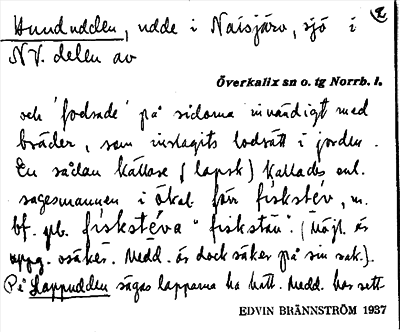 Hundudden, udde i Naisjärv, sjö i
NV. delen av
Överkalix sn o. tg Norrb. l.
och 'fodrade' på sidorna invändigt med
bräder, som inslagits lodrätt i jorden.
En sådan källare (lapsk) kallades enl.
sagesmannen i Ökal. förr fiskstév, m.
bf. pl. fiskstéva "fiskstän". (Möjl. är
uppg. osäker. Medd. är dock säker på sin sak.).
På Lappudden sägas lapparna ha hållt. Medd. har sett
EDVIN BRÄNNSTRÖM 1937